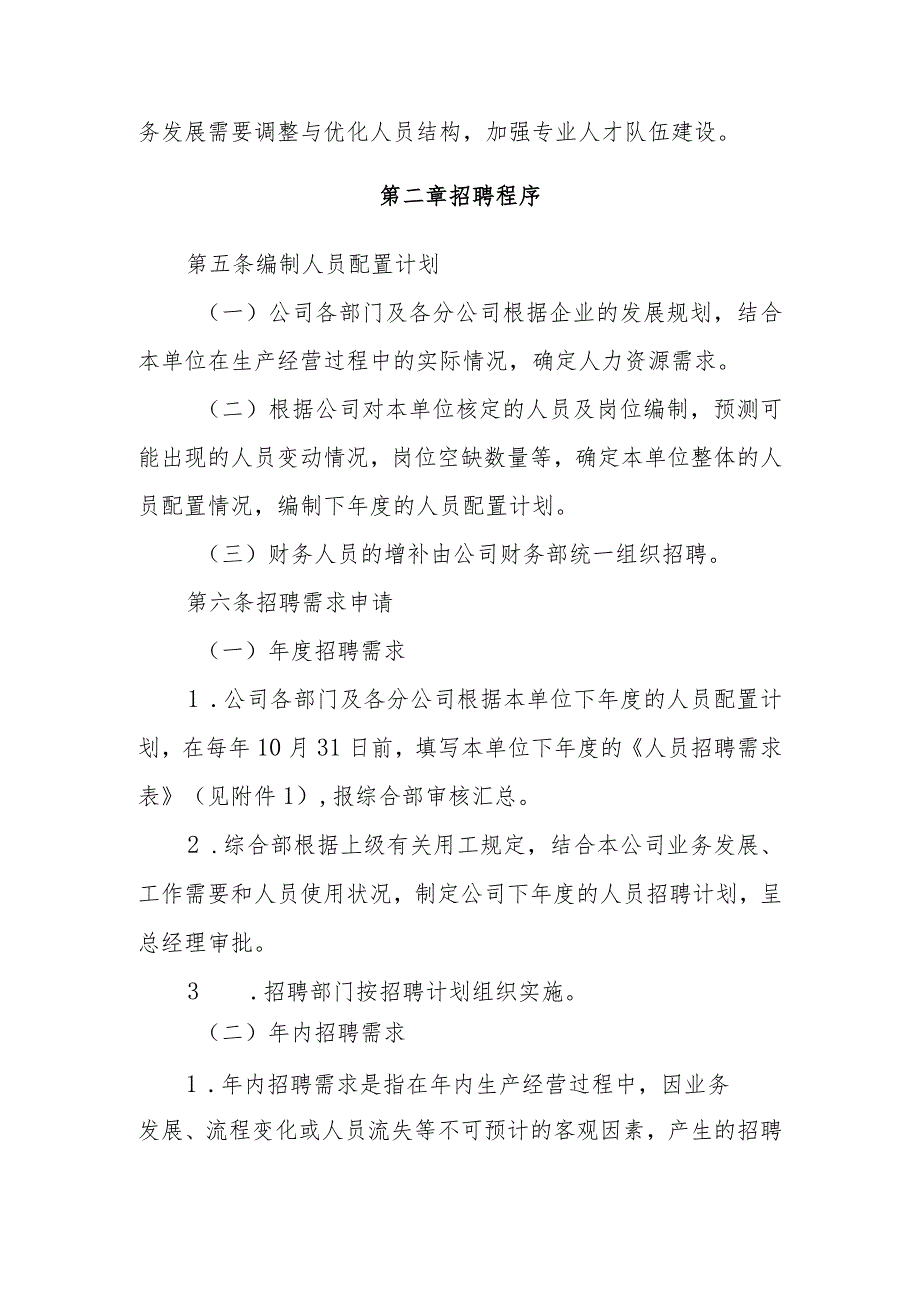 务发展需要调整与优化人员结构，加强专业人才队伍建设。
第二章招聘程序
第五条编制人员配置计划
（一）公司各部门及各分公司根据企业的发展规划，结合
本单位在生产经营过程中的实际情况，确定人力资源需求。
（二）根据公司对本单位核定的人员及岗位编制，预测可
能出现的人员变动情况，岗位空缺数量等，确定本单位整体的人
员配置情况，编制下年度的人员配置计划。
（三）财务人员的增补由公司财务部统一组织招聘。
第六条招聘需求申请
（一）年度招聘需求
1.公司各部门及各分公司根据本单位下年度的人员配置计
划，在每年10月31日前，填写本单位下年度的《人员招聘需求
表》（见附件1）,报综合部审核汇总。
2.综合部根据上级有关用工规定，结合本公司业务发展、
工作需要和人员使用状况，制定公司下年度的人员招聘计划，呈
总经理审批。
3 .招聘部门按招聘计划组织实施。
（二）年内招聘需求
1.年内招聘需求是指在年内生产经营过程中，因业务
发展、流程变化或人员流失等不可预计的客观因素，产生的招聘